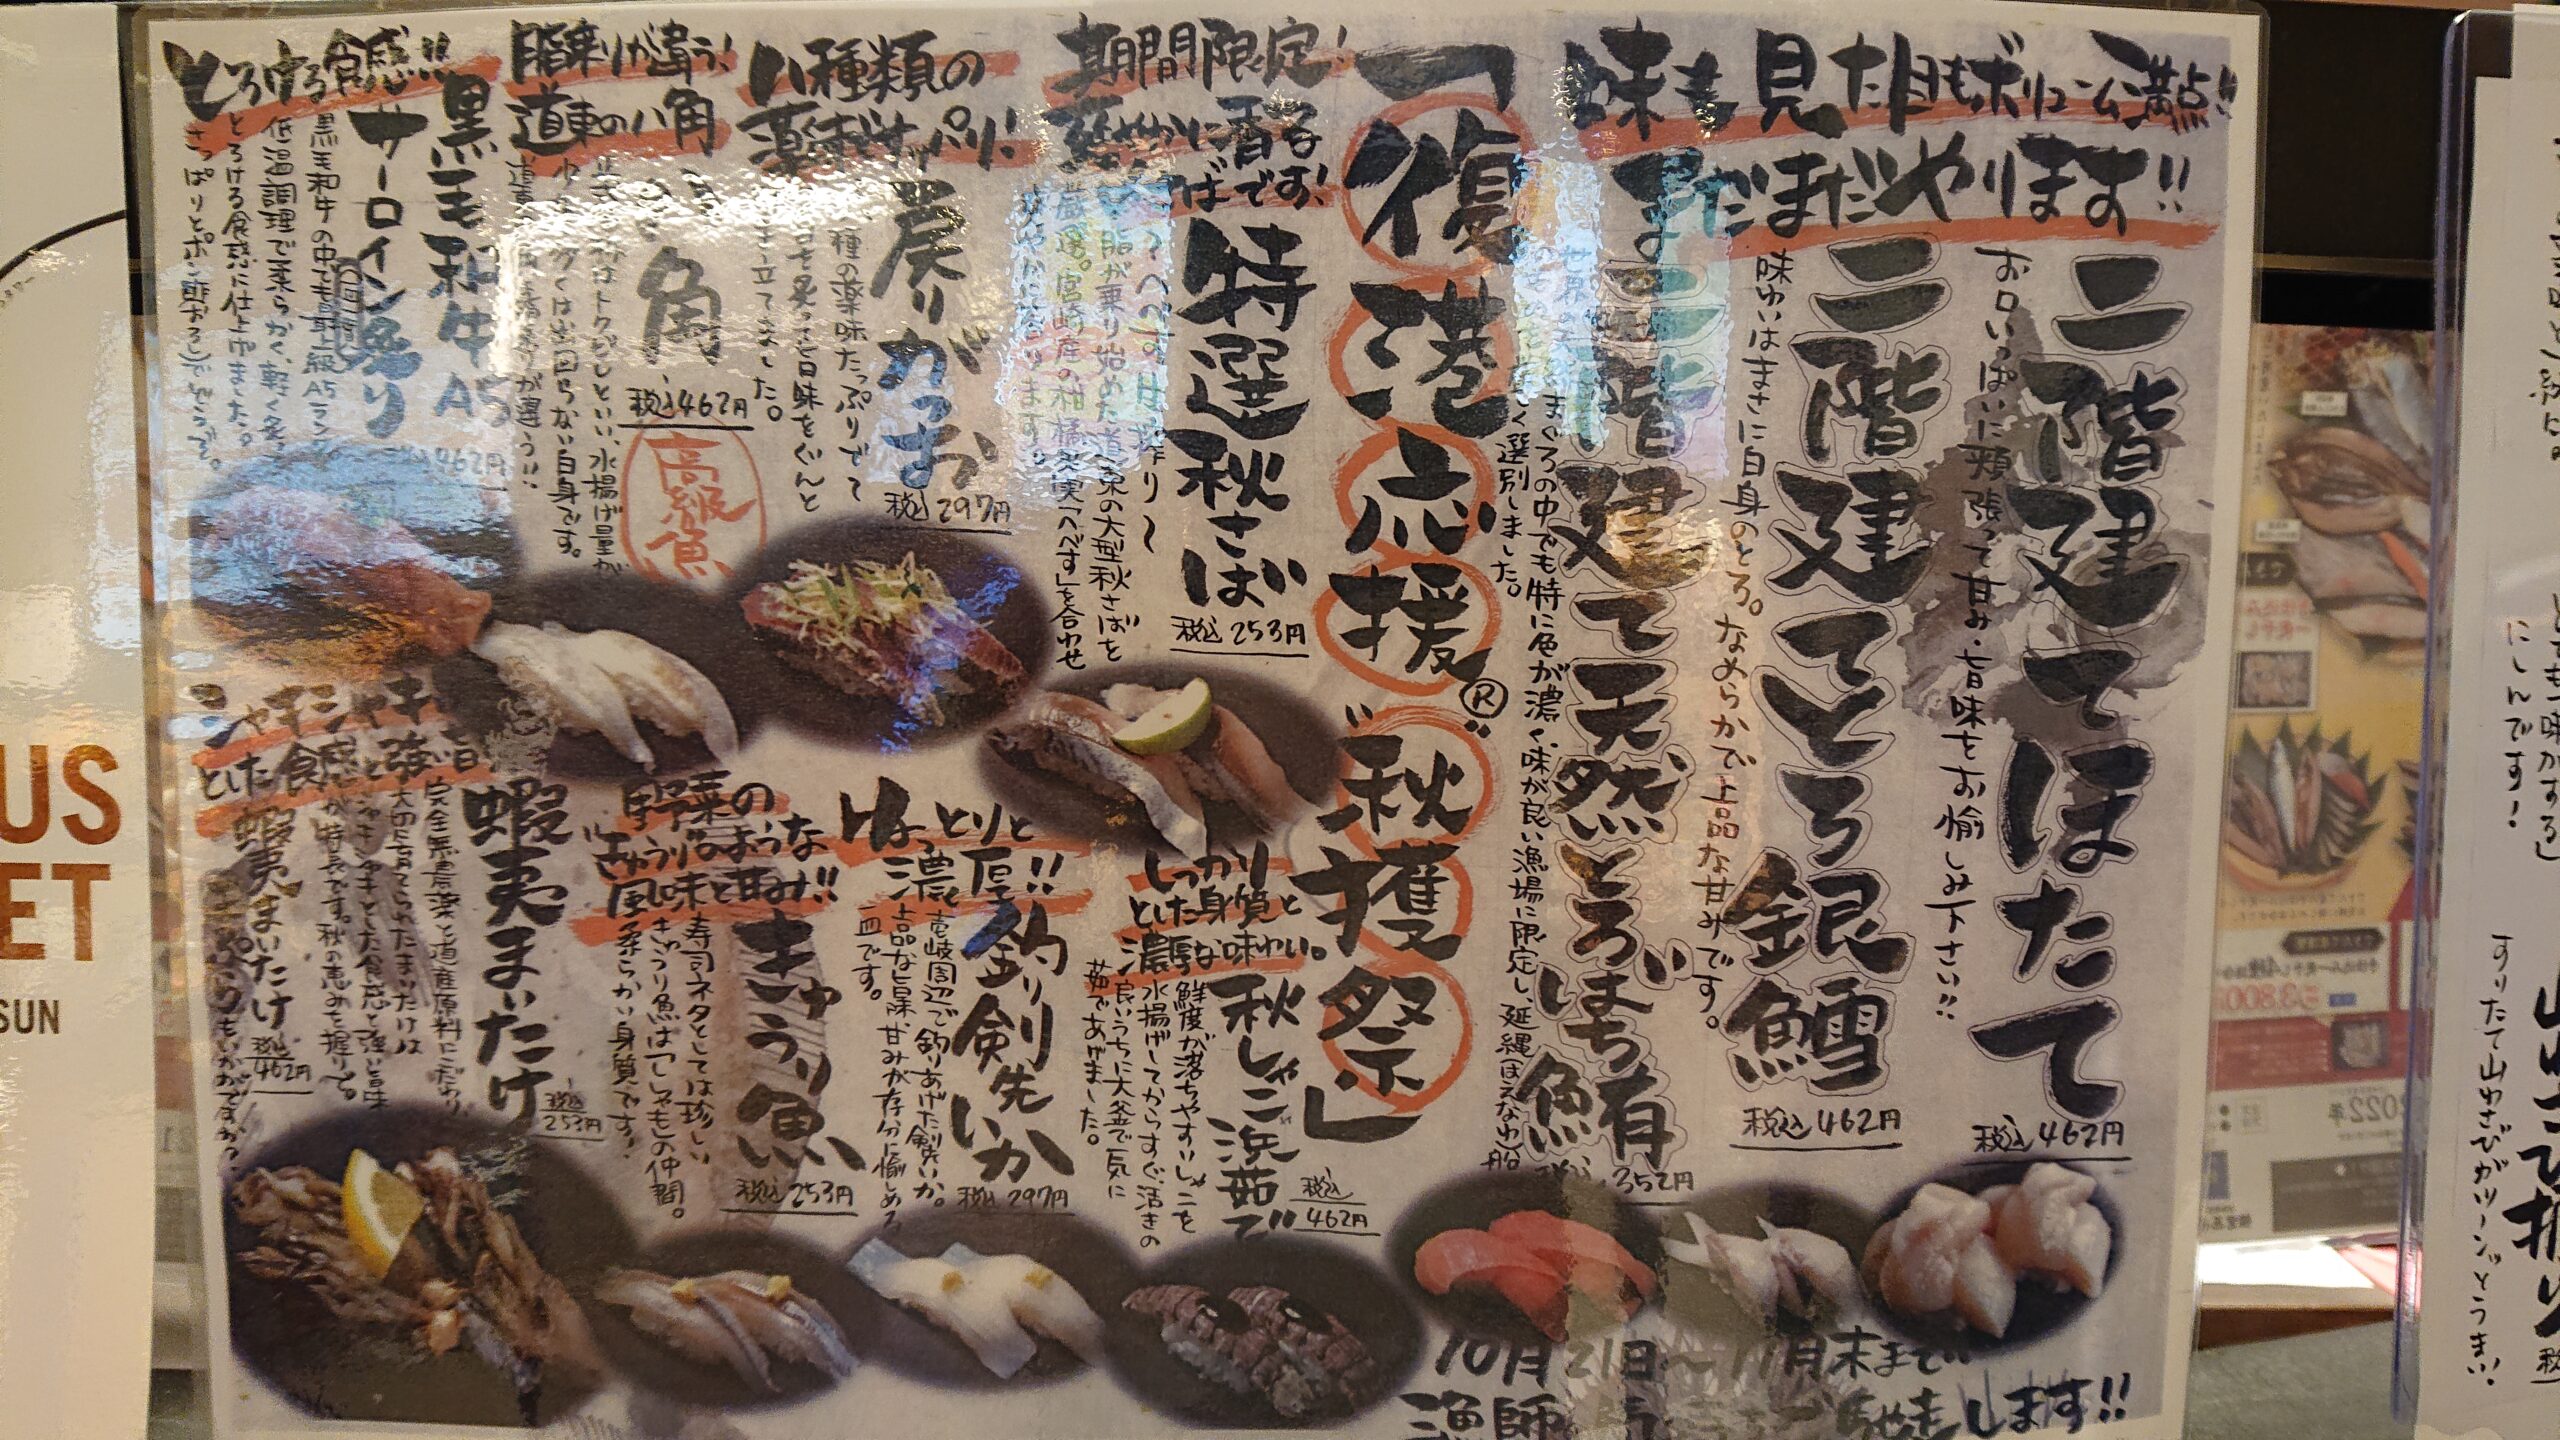 味も見た目もボリューム満点!!
まだまだやりほす!!
二階建てほたて
税込462円
お口いっぱいに頬張って甘み・旨味をお愉しみ下さい!!
二階建てとろ銀鱈
税込462円
味わいはまさに白身のとろ。なめらかで上品な甘みです。
二階建て天然とろばち鮪
税込352円
まぐろの中でも特に色が濃く、味が良い漁場に限定し、延縄(はえなわ)船
く選別しました。
「復港応援®"秋獲祭"」
期間限定!
香る
さばです!
特選秋さば
税込253円
脂が乗り始めた道東の大型秋さばを
厳選。宮崎産の柑橘果実「へべす」を合わせ
八種類の
薬味でサッパリ!
戻りがつお
税込297円
種の薬味たっぷりで
炙って旨味をぐんと
仕立てました。
脂乗りが違う!
道東の八角
八角
税込462円
高級魚
はトクビレといい、水揚げ量が
少なく多くは出回らない白身です。
が違う!!
とろける食感!!
黒毛和牛A5
サーロイン炙り
462円
黒毛和牛の中でも最上級A5ランク
低温調理で柔らかく、軽く炙って
とろける食感に仕上げました。
さっぱりとポン酢おろしでどうぞ。
しっかり
とした身質と
濃厚な味わい。
秋しゃこ浜茹で
税込
462円
鮮度が落ちやすいしゃこを
水揚げしてからすぐ、活きの
良いうちに大釜で一気に
茹であげました。
ねっとりと
濃厚!!
釣り剣先いか
税込297円
壱岐周辺で釣りあげた剣先いか。
上品な旨味、甘みが存分に愉しめる
一皿です。
野菜の
"きゅうり"のような
風味と甘み!!
きゅうり魚
税込253円
寿司ネタとしては珍しい
きゅうり魚は「ししゃも」の仲間。
柔らかい身質です!
シャキシャキ
とした食感と強い旨
蝦夷まいたけ
税込
253円
完全無農薬と道産原料にこだわり
大切に育てられたまいたけは
シャキシャキとした食感と強い旨味
が特長です。秋の恵みを握りで。
蝦夷まいたけ
税込
462円
もいかがですか?
10月21日〜11月末まで
漁師
します!!
US
ET
SUN
にしんです!
すりたて山わさびがツーンっとうまい!
3,800
2022年